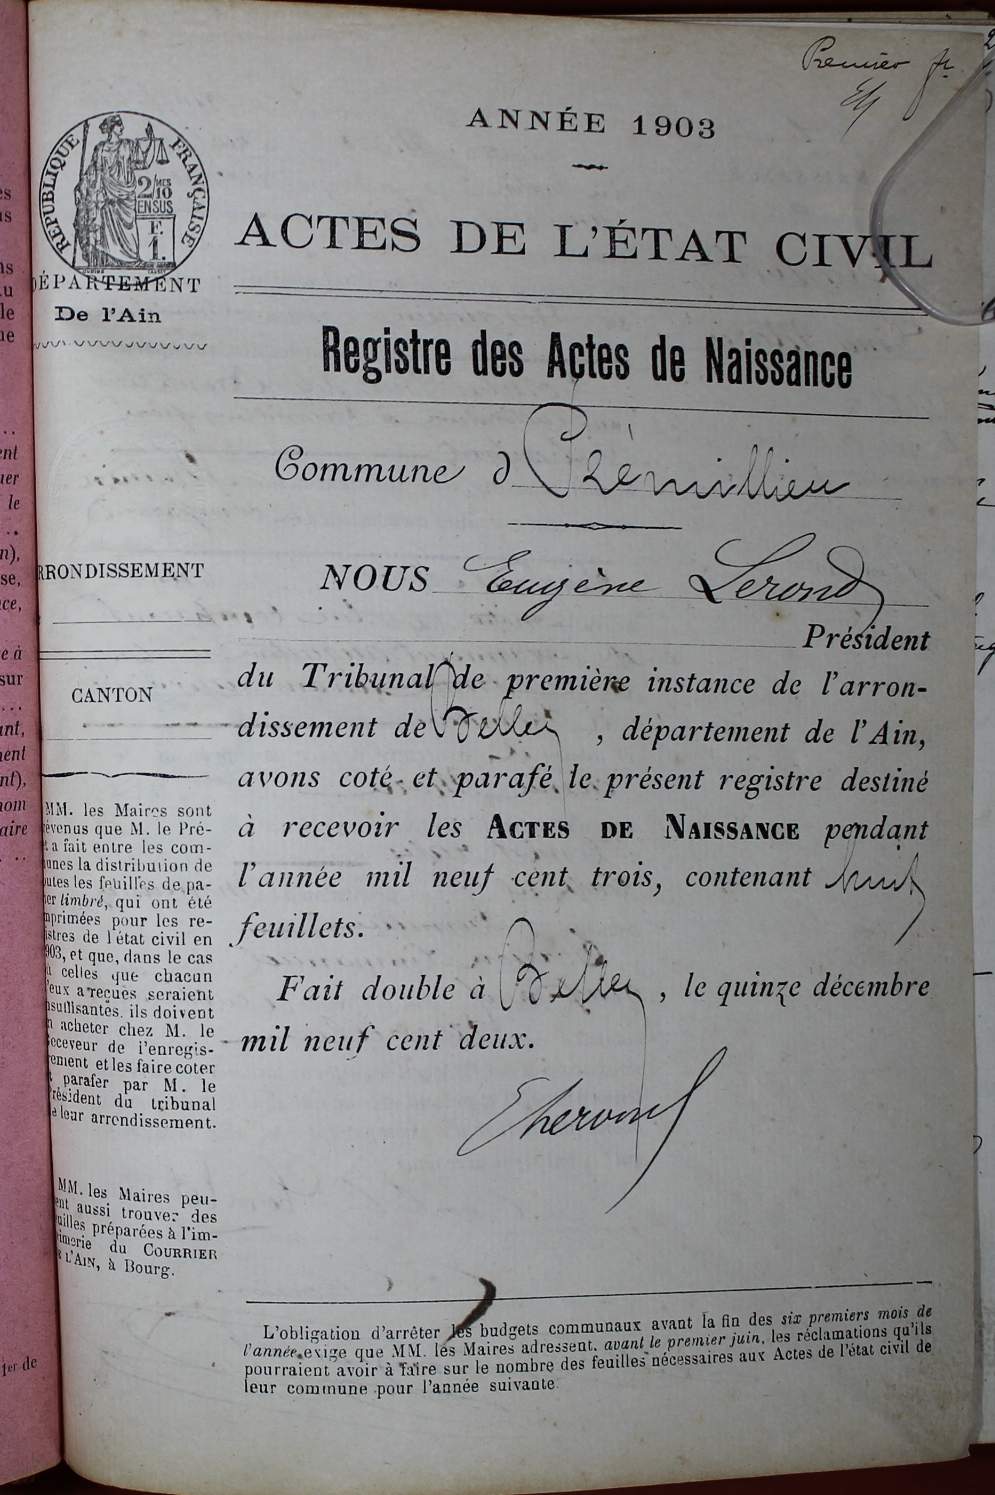 Premier
ANNÉE 1903
RÉPUBLIQUE FRANÇAISE
2/10 MES
EN SUS
F.
1.
ACTES DE L'ÉTAT CIVIL
DÉPARTEMENT
De l'Ain
Registre des Actes de Naissance
Commune d Prémillieu
ARRONDISSEMENT
NOUS Eugène Lerond
Président
CANTON
du Tribunal de première instance de l'arron-
dissement de Belley, département de l'Ain,
avons coté et parafé le présent registre destiné
à recevoir les ACTES DE NAISSANCE pendant
l'année mil neuf cent trois, contenant huit
feuillets.
Fait double à Belley, le quinze décembre
mil neuf cent deux.
MM. les Maires sont
révenus que M. le Pré-
t a fait entre les com-
unes la distribution de
outes les feuilles de pa-
er timbré, qui ont été
mprimées pour les re-
istres de l'état civil en
903, et que, dans le cas
ù celles que chacun
'eux a reçues seraient
nsuffisantes, ils doivent
n acheter chez M. le
eceveur de l'enregis-
rement et les faire coter
t parafer par M. le
résident du tribunal
e leur arrondissement.
MM. les Maires peu-
ent aussi trouver des
uilles préparées à l'im-
imerie du COURRIER
E L'AIN, à Bourg.
L'obligation d'arrêter les budgets communaux avant la fin des six premiers mois de
l'année exige que MM. les Maires adressent, avant le premier juin, les réclamations qu'ils
pourraient avoir à faire sur le nombre des feuilles nécessaires aux Actes de l'état civil de
leur commune pour l'année suivante.